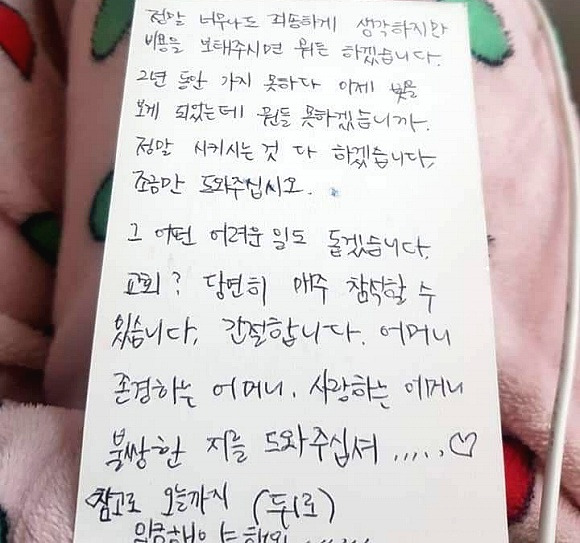 정말 너무나도 죄송하게 생각하지만
비용을 보태주시면 뭐든 하겠습니다.
2년 동안 가지 못하다 이제 빛을
보게 되었는데 뭔들 못하겠습니까.
정말 시키시는것 다 하겠습니다,
조금만 도와주십시오.
그 어떤 어려운 일도 돕겠습니다.
교회? 당연히 매주 참석할 수
있습니다, 간절합니다. 어머니
존경하는 어머니, 사랑하는 어머니
불쌍한 저를 도와주십셔 .....♡
참고로 오늘까지 (뒤로)
입금해야